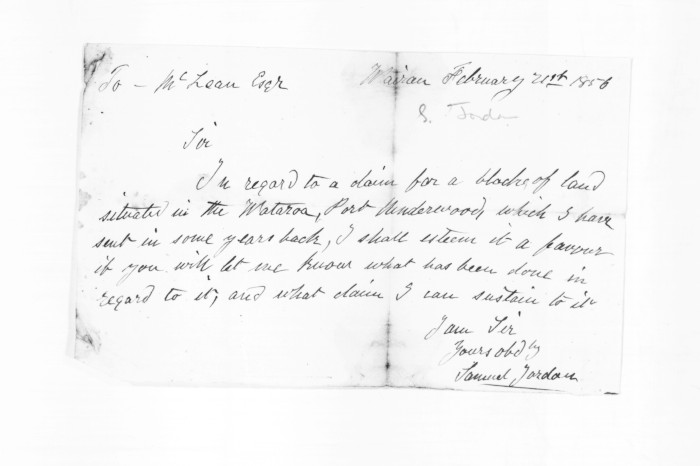 To - McLean Esqr Wairau February 21st 1856
S. Jordan
Sir
In regard to a claim for a block of land
situated in the Wataroa, Port Underwood, which I have
sent in some years back, I shall esteem it a favour
if you will let me know what has been done in
regard to it, and what claim I can sustain to it
I am Sir
Yours obdly
Samuel Jordan